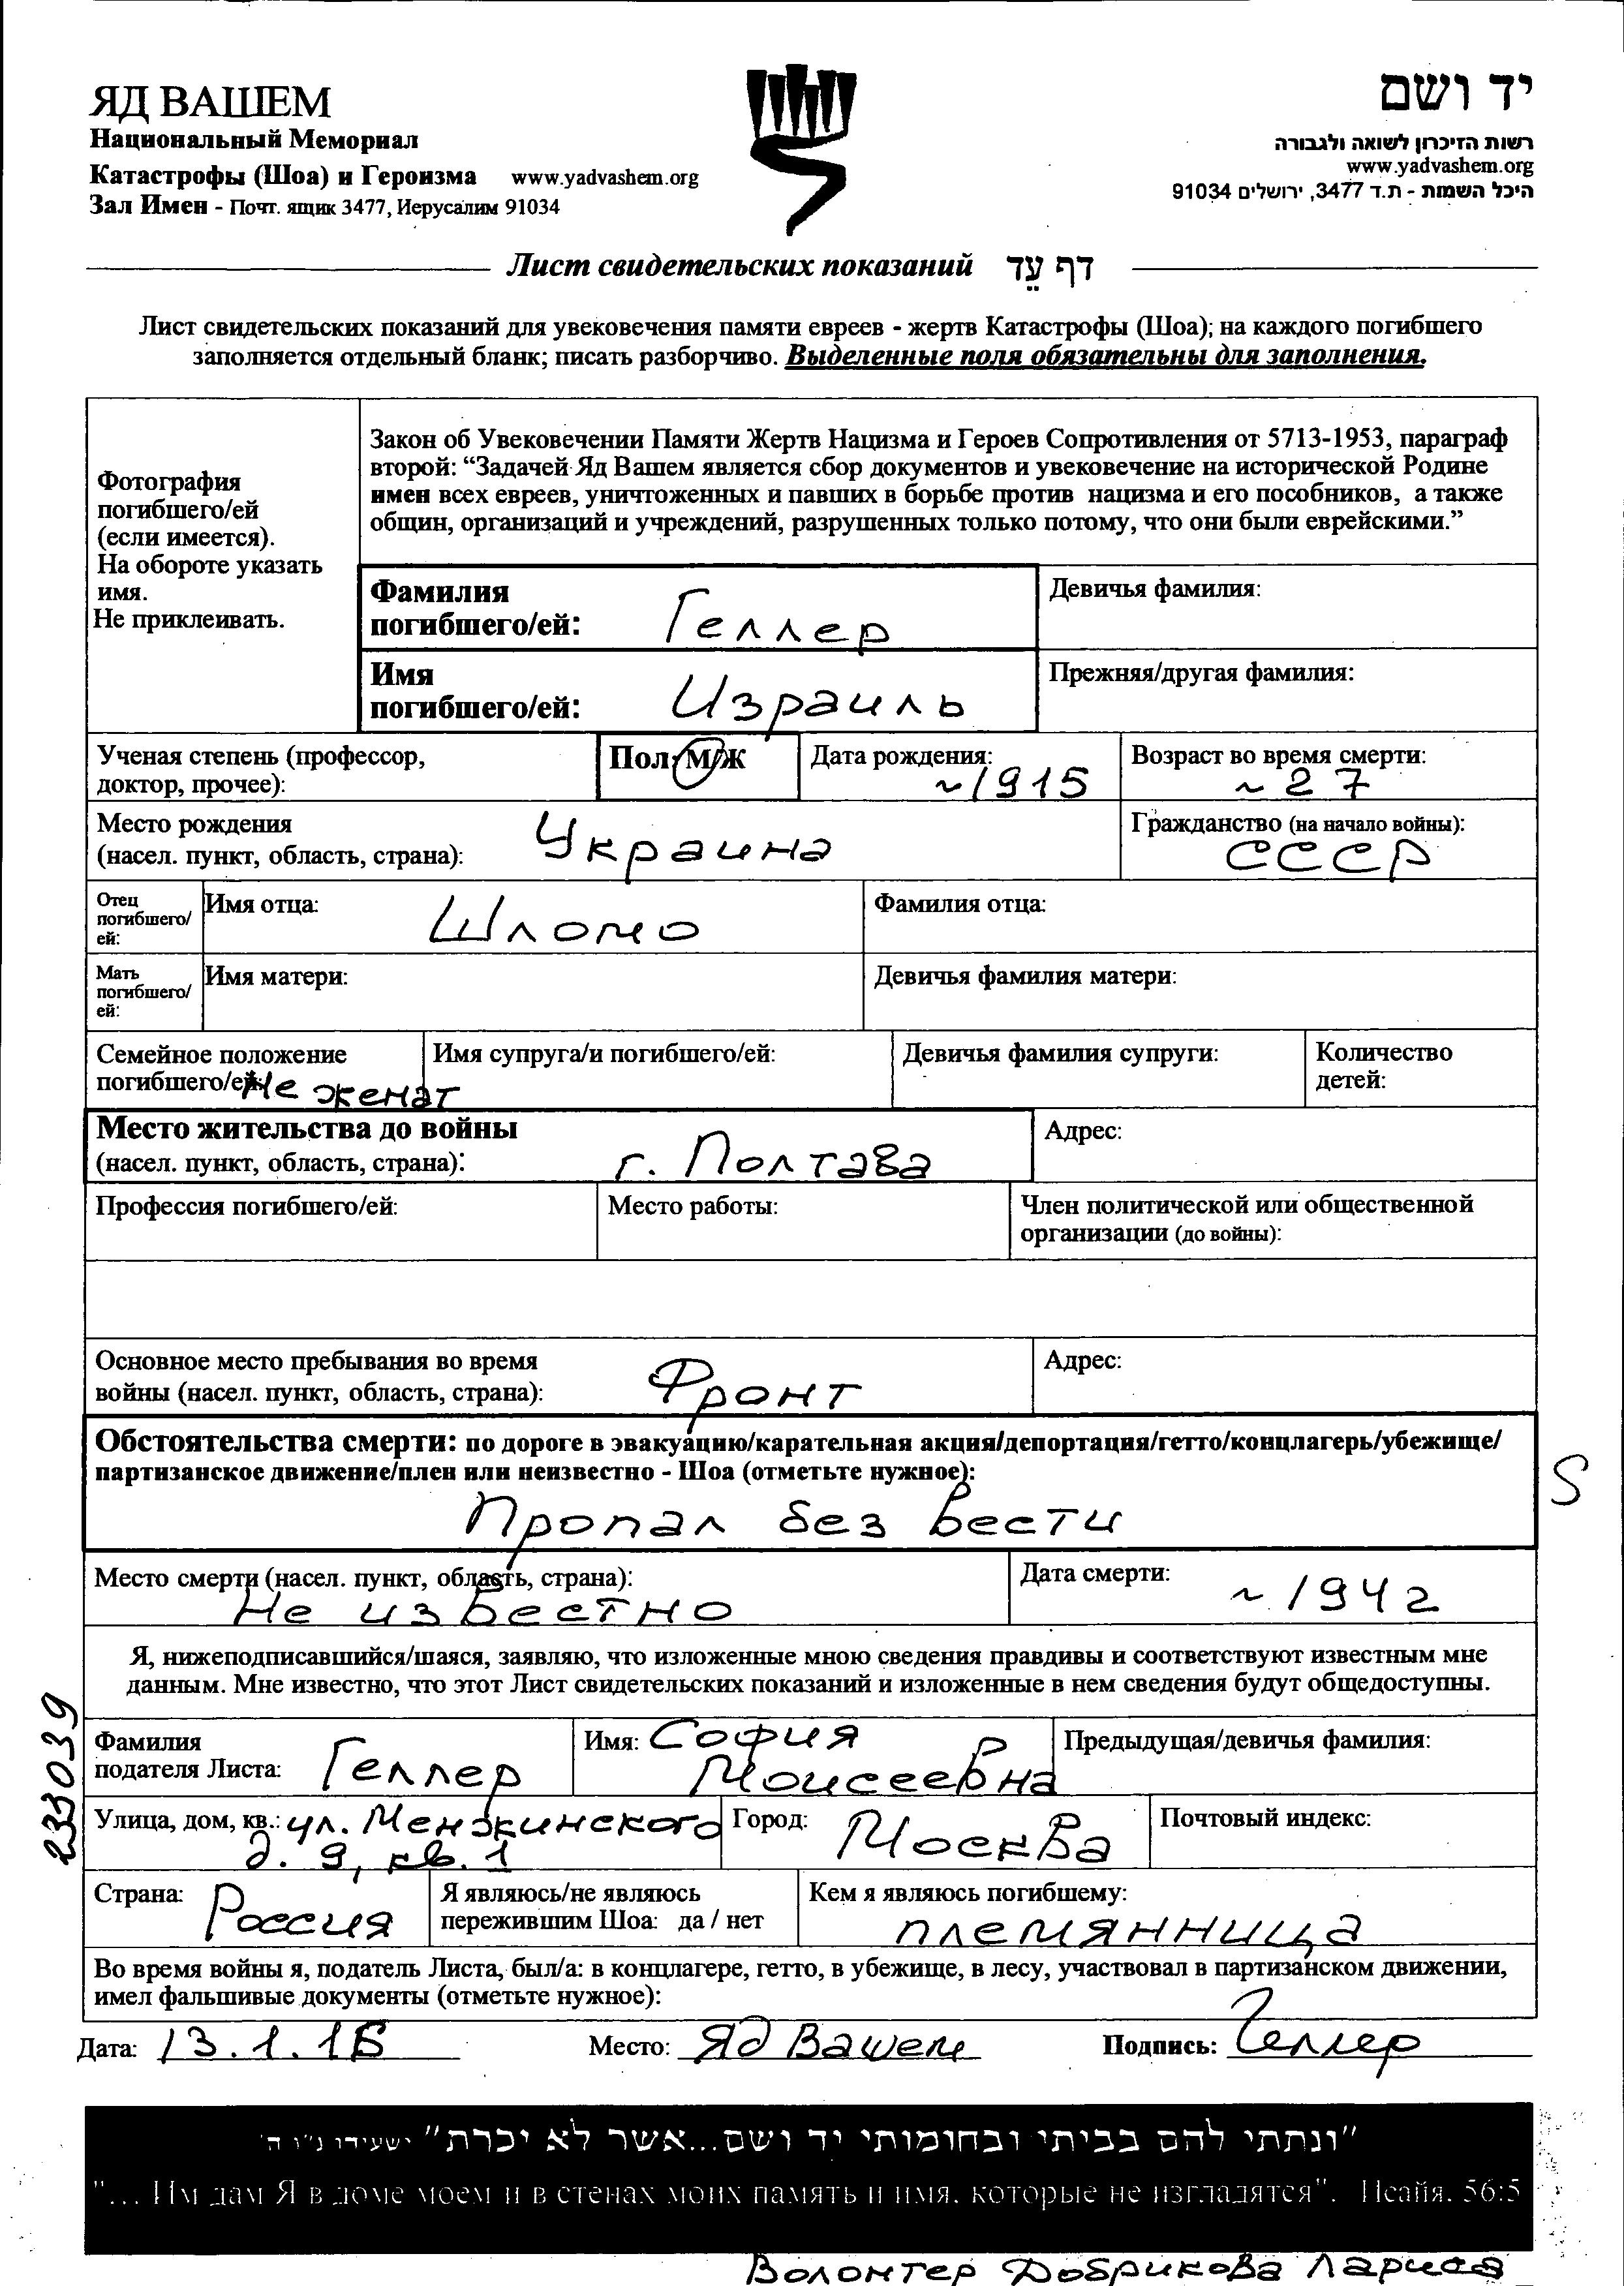 ЯД ВАШЕМ
Национальный Мемориал
Катастрофы (Шоа) и Героизма www.yadvashem.org
Зал Имен - Почт. ящик 3477, Иерусалим 91034
יד ושם
רשות הזיכרון לשואה ולגבורה
www.yadvashem.org
היכל השמות - ת.ד 3477, ירושלים 91034
Лист свидетельских показаний דף עֵד
Лист свидетельских показаний для увековечения памяти евреев - жертв Катастрофы (Шоа); на каждого погибшего
заполняется отдельный бланк; писать разборчиво. Выделенные поля обязательны для заполнения.
Фотография
погибшего/ей
(если имеется).
На обороте указать
имя.
Не приклеивать.
Закон об Увековечении Памяти Жертв Нацизма и Героев Сопротивления от 5713-1953, параграф
второй: “Задачей Яд Вашем является сбор документов и увековечение на исторической Родине
имен всех евреев, уничтоженных и павших в борьбе против нацизма и его пособников, а также
общин, организаций и учреждений, разрушенных только потому, что они были еврейскими.”
Фамилия
погибшего/ей: Геллер
Девичья фамилия:
Имя
погибшего/ей: Израиль
Прежняя/другая фамилия:
Ученая степень (профессор,
доктор, прочее):
Пол: М/Ж
Дата рождения:
~1915
Возраст во время смерти:
~27
Место рождения
(насел. пункт, область, страна): Украина
Гражданство (на начало войны):
СССР
Отец
погибшего/
ей:
Имя отца: Шломо
Фамилия отца:
Мать
погибшего/
ей:
Имя матери:
Девичья фамилия матери:
Семейное положение
погибшего/ей: Не женат
Имя супруга/и погибшего/ей:
Девичья фамилия супруги:
Количество
детей:
Место жительства до войны
(насел. пункт, область, страна): г. Полтава
Адрес:
Профессия погибшего/ей:
Место работы:
Член политической или общественной
организации (до войны):
Основное место пребывания во время
войны (насел. пункт, область, страна): Фронт
Адрес:
Обстоятельства смерти: по дороге в эвакуацию/карательная акция/депортация/гетто/концлагерь/убежище/
партизанское движение/плен или неизвестно - Шоа (отметьте нужное):
Пропал без вести
S
Место смерти (насел. пункт, область, страна):
Не известно
Дата смерти:
~1942
Я, нижеподписавшийся/шаяся, заявляю, что изложенные мною сведения правдивы и соответствуют известным мне
данным. Мне известно, что этот Лист свидетельских показаний и изложенные в нем сведения будут общедоступны.
233039
Фамилия
подателя Листа: Геллер
Имя: София
Моисеевна
Предыдущая/девичья фамилия:
Улица, дом, кв.: ул. Менжинского
д. 9, кв. 1
Город: Москва
Почтовый индекс:
Страна: Россия
Я являюсь/не являюсь
пережившим Шоа: да / нет
Кем я являюсь погибшему:
племянница
Во время войны я, податель Листа, был/а: в концлагере, гетто, в убежище, в лесу, участвовал в партизанском движении,
имел фальшивые документы (отметьте нужное):
Дата: 13.1.16 Место: Яд Вашем Подпись: Геллер
"ונתתי להם בביתי ובחומותי יד ושם...אשר לא יכרת" ישעיהו נ"ו ה'
"... Им дам Я в доме моем и в стенах моих память и имя, которые не изгладятся". Исайя. 56:5
Волонтер Добрикова Лариса